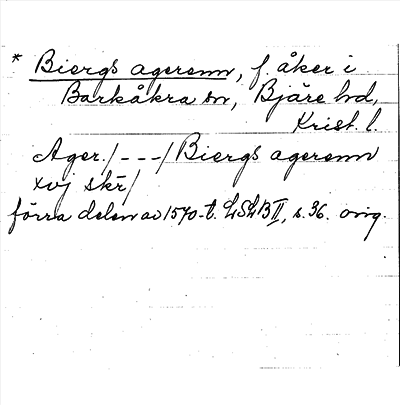 * Biergs agerenn, f. åker i
Barkåkra sn, Bjäre hd,
Krist. l.
Ager. /---/ Biergs agerenn
xvj skr/
förra delen av 1570-t. LSLB II, s. 36. orig.